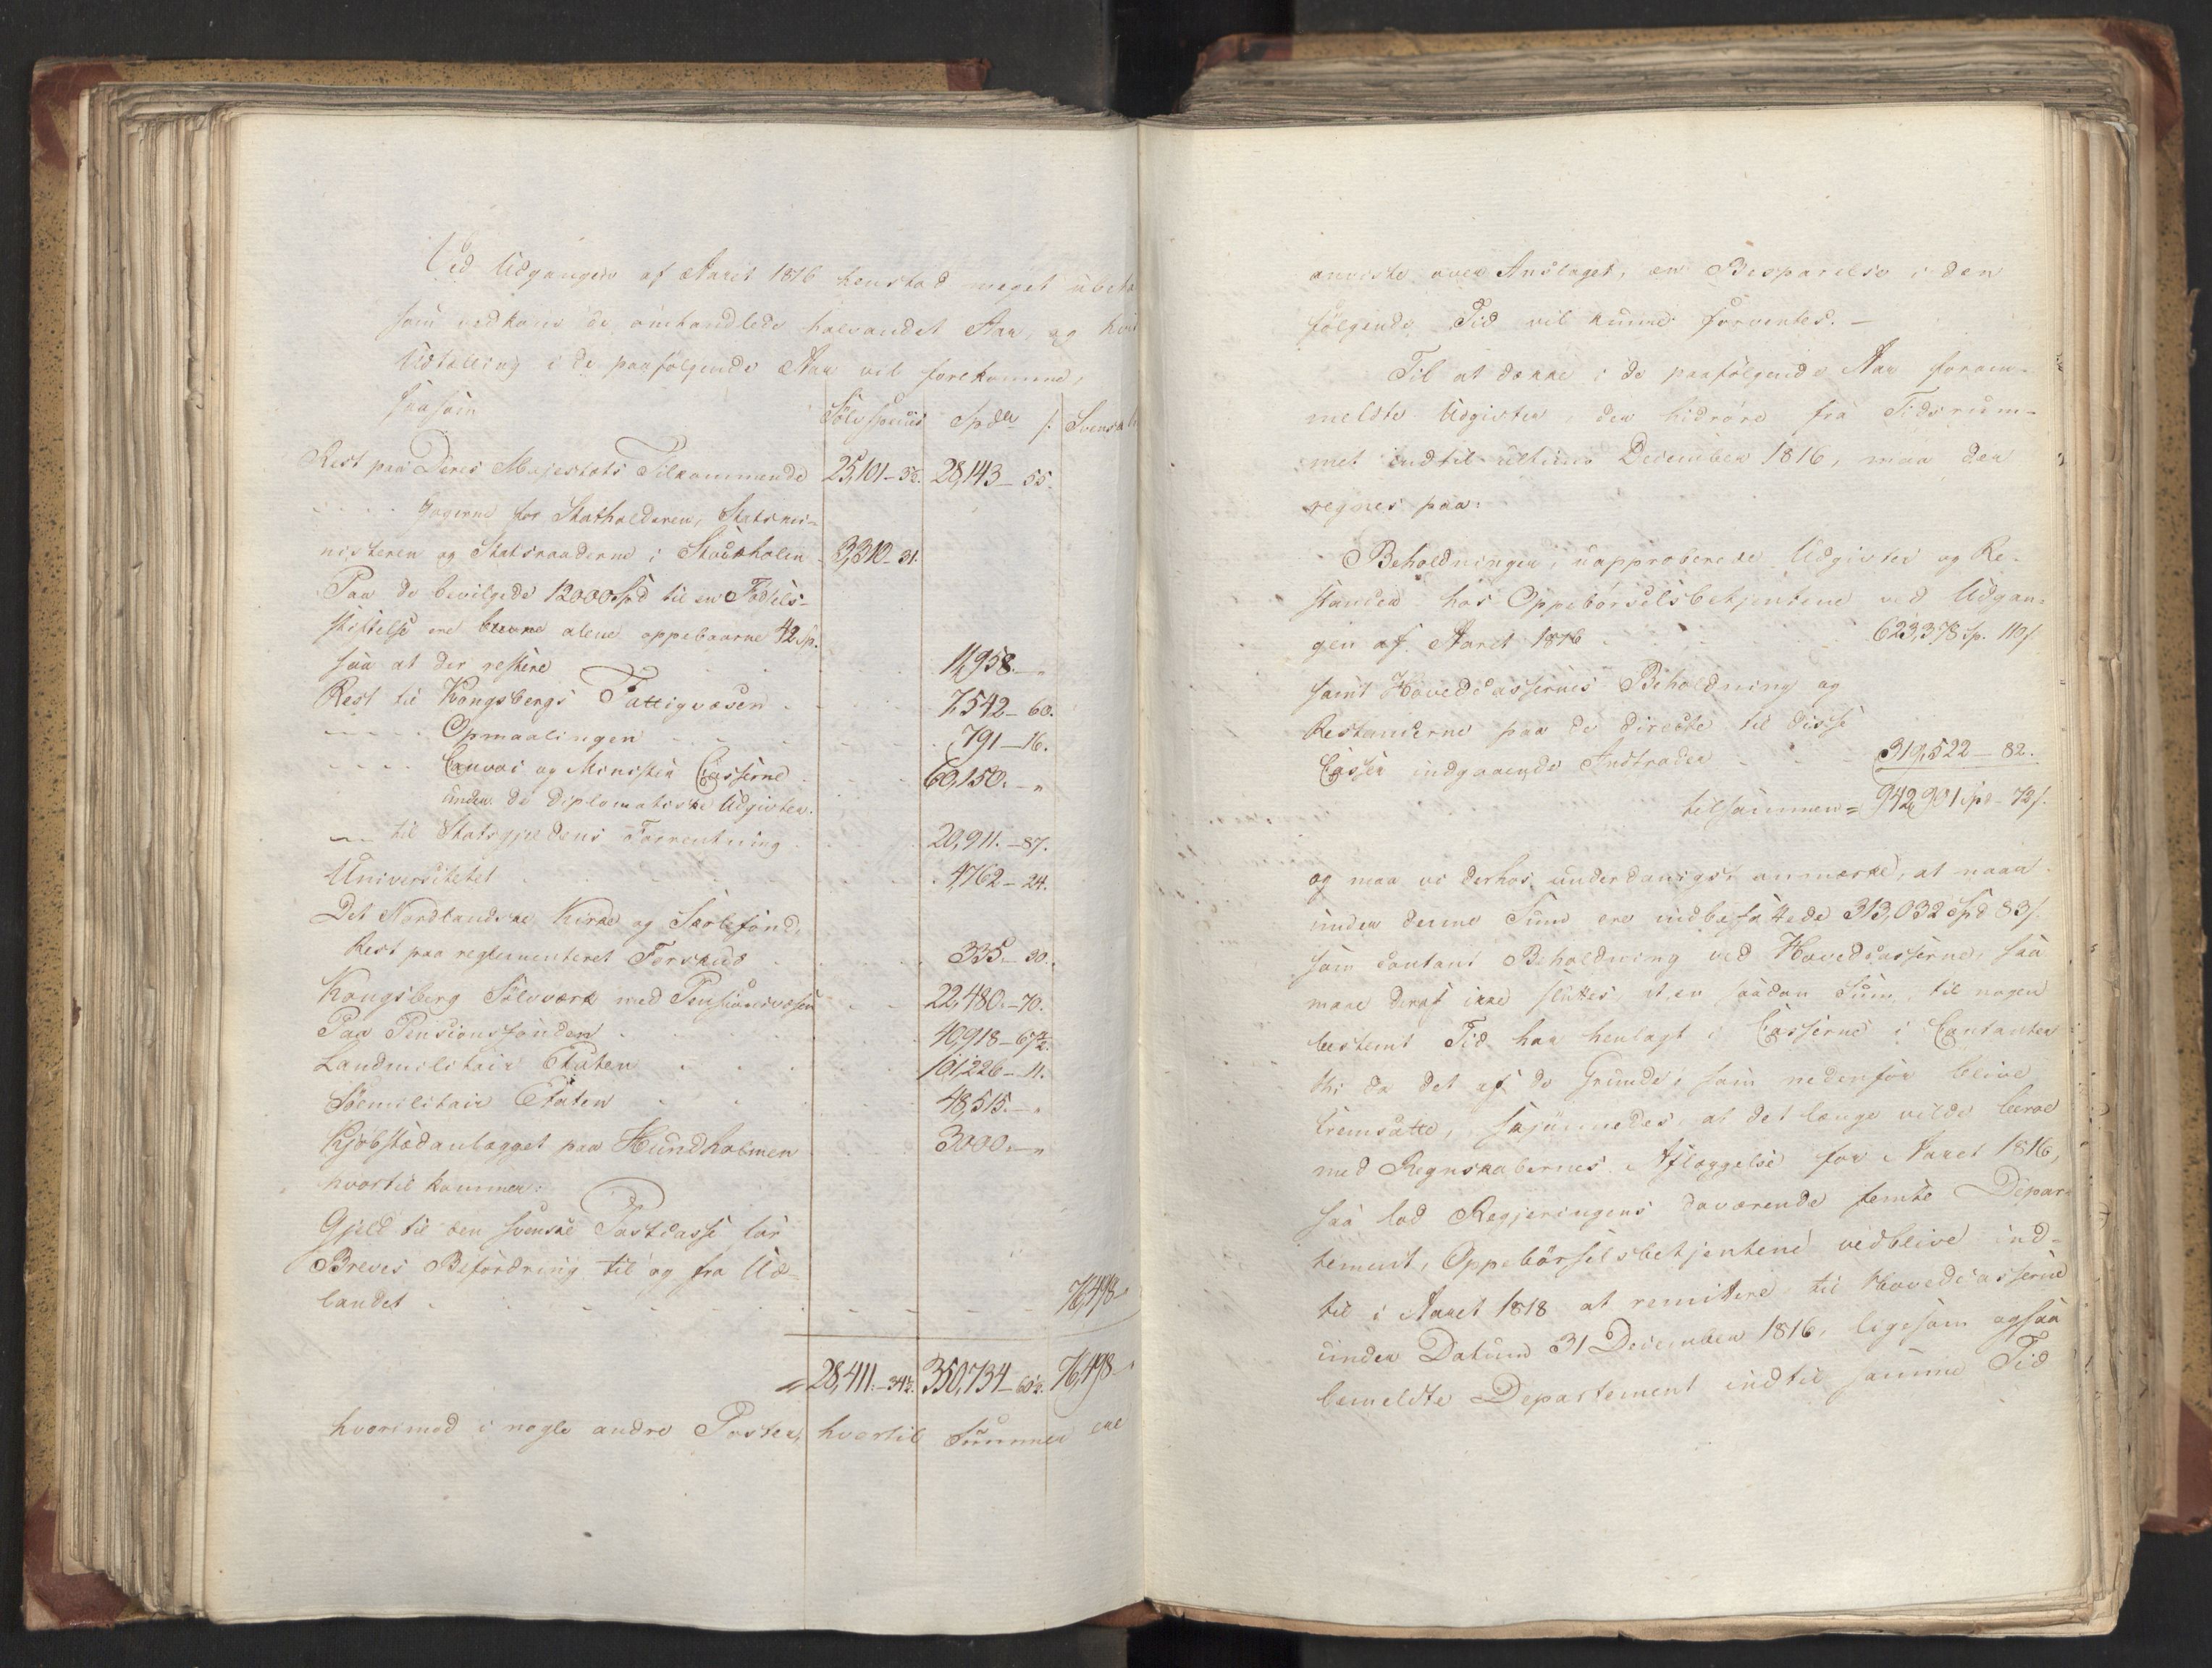 Ved Udgangen af Aaret 1816 henstod meget ube
som vedkom de omhandlede halvandet Aar, og
Udtælling i de paafølgende Aar vil forekomme,
saasom
Sølv Species Spdr /: Svensk
Rest paa Deres Majestæts Tilkommende 25,101 - 3½. 28,143 - 55.
- - - - Gagerne for Statholderen, Statsmi-
nisteren og Statsraaderne i Stockholm 3,310 - 31.
Paa de bevilgede 12000 Spd til en Fødsels-
stiftelse ere alene oppebaarne 42 Sp.
saa at der restere 11,958. - "
Rest til Kongsbergs Fattigvæsen 7,542 - 60.
- - - - Opmaalingen 791 - 16.
- - - - og Minister Casserne 60,150. - "
under de diplomatiske Udgifter.
- til Statsgjeldens Forrentning 20,911. - 87.
Universitetet 4762 - 24.
Det Nordlandske Kirke og Skolefond,
Rest paa reglementeret Forskud 335. - 30.
Kongsberg Sølvværk med Pensionsvæsen 22,480. - 70.
Paa Pensionsfonden 40,918 - 67½.
Landmilitair Etaten 101,226 - 11.
Søemilitair Etaten 48,515. - "
Kjøbstædanlægget paa Hundholmen 3000. - "
hvortil kommer:
Gjeld til den svenske Postcasse for
Breves Befordring til og fra Ud-
landet 76,498 -
= 28,411. - 34½. 350,734 - 60½. 76,498 -
hvorimod i nogle andre Poster, hvortil Summer ere
anviste over Anslaget, en Besparelse i den
følgende Tid vil kunne forventes. -
Til at dække i de paafølgende Aar foran-
meldte Udgifter, der hidrøre fra Tidsrum-
met indtil ultimo December 1816, maa der
regnes paa:
Beholdningen, uapproberede Udgifter og Re-
stancer hos Oppebørselsbetjentene ved Udgan-
gen af Aaret 1816 623,378 Sp. 110 /.
samt Hovedcassernes Beholdning og
Restancerne paa de directe til disse
Casser indgaaende Indtrader 319,522 - 82.
tilsammen = 942,901 Spd - 72 /.
og maa vi derhos underdanigst anmærke, at naar
under denne Sum ere indbefattede 313,032 Spd 83 /.
som contant Beholdning ved Hovedcasserne, saa
maae deraf ikke sluttes, at en saadan Sum til nogen
bestemt Tid har henlagt i Casserne i Contanter
thi da det af de Grunde, som nedenfor blive
fremsatte, skjønnedes, at det længe vilde vare
med Regnskabernes Aflæggelse for Aaret 1816,
saa lod Regjeringens daværende femte Depar-
tement, Oppebørselsbetjentene vedblive ind-
til i Aaret 1818 at remittere til Hovedcasserne
under Datum 31 December 1816, ligesom ogsaa
bemeldte Departement indtil samme Tid